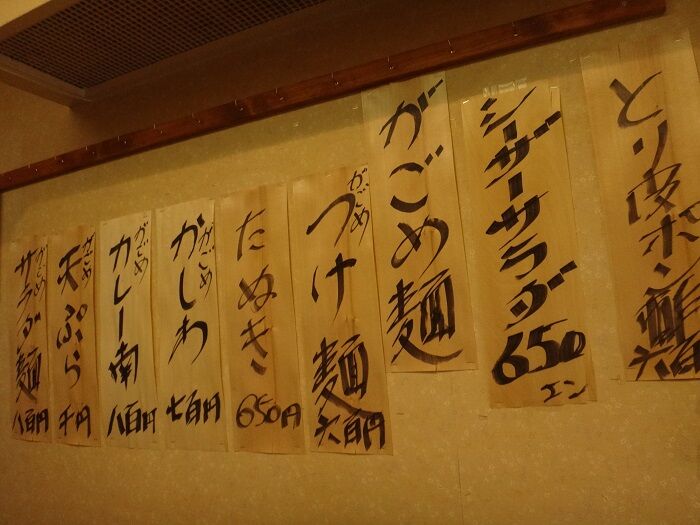 とり皮ポン酢
六百
シーザーサラダ
650
エン
がごめ麺
がごめ
つけ麺
六百円
たぬき
650円
がごめ
かしわ
七百円
がごめ
カレー南
八百円
がごめ
天ぷら
千円
がごめ
サラダ麺
八百円